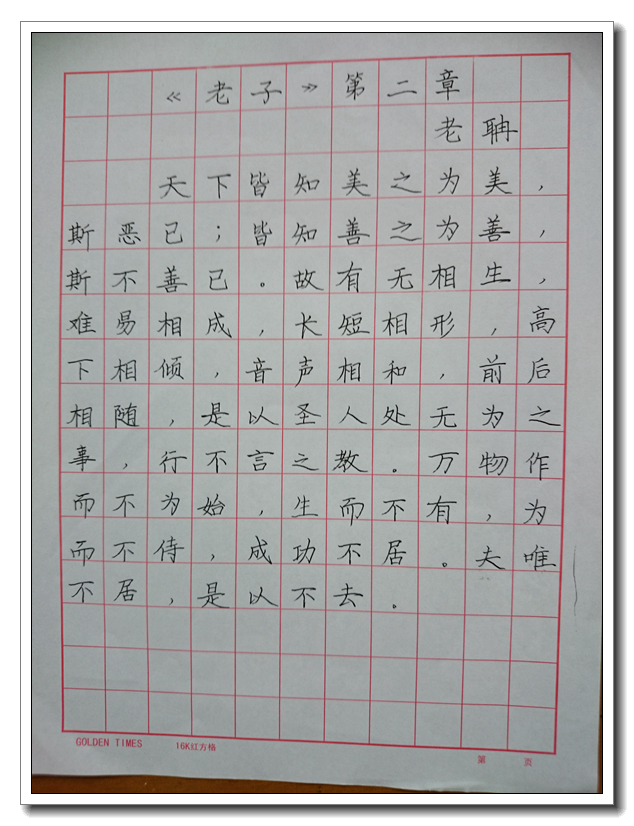 《老子》第二章
老聃
天下皆知美之为美，
斯恶已；皆知善之为善，
斯不善已。故有无相生，
难易相成，长短相形，高
下相倾，音声相和，前后
相随，是以圣人处无为之
事，行不言之教。万物作
而不为始，生而不有，为
而不侍，成功不居。夫唯
不居，是以不去。
GOLDEN TIMES 16K红方格 第 页